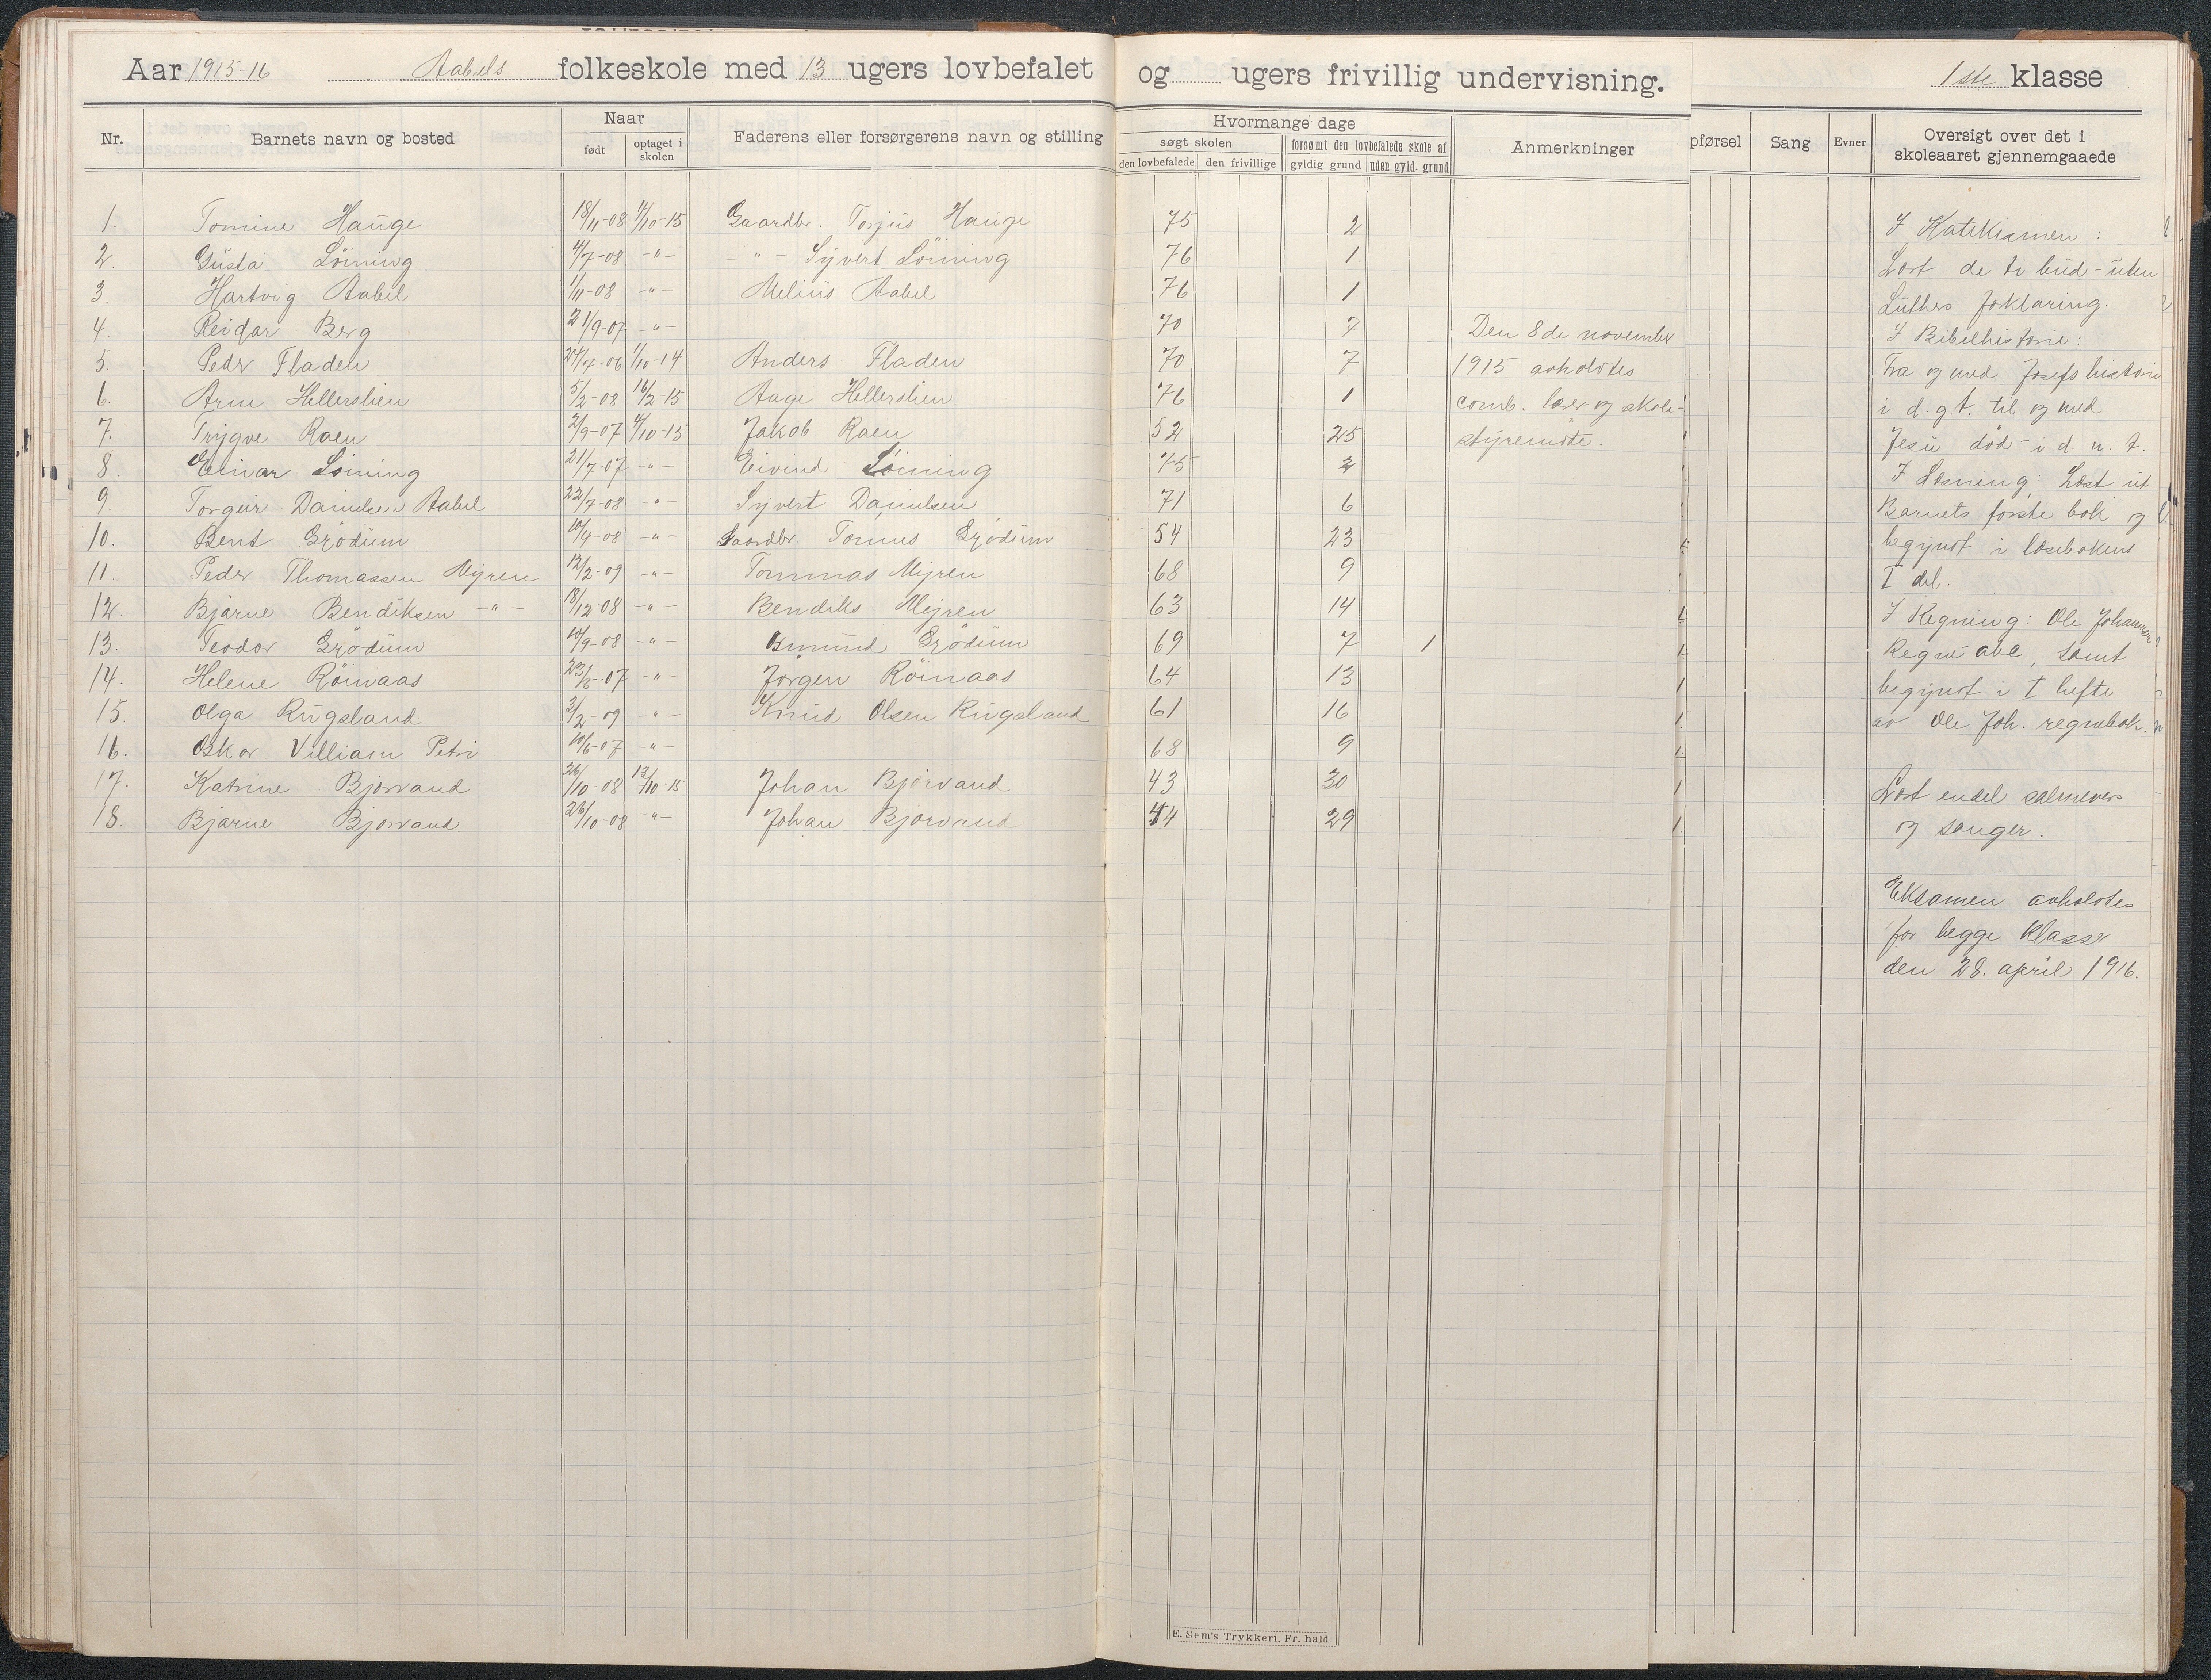 Aar 1915-16 Aabels folkeskole med 13 ugers lovbefalet og ugers frivillig undervisning. 1ste klasse
Nr. Barnets navn og bosted Naar født optaget i skolen Faderens eller forsørgerens navn og stilling
Hvormange dage
søgt skolen forsømt den lovbefalede skole af
den lovbefalede den frivillige gyldig grund uden gyld. grund
Anmerkninger
pførsel Sang Evner Oversigt over det i
skoleaaret gjennemgaaede
1. Tomine Hauge 18/11-08 4/10-15 Gaardbr. Torjus Hauge 75 2
2. Gusta Löining 4/7-08 -"- -"- Syvert Löining 76 1
3. Hartvig Aabel 1/11-08 -"- Melius Aabel 76 1
4. Reidar Berg 21/9-07 -"- 70 7
5. Peder Fladen 24/7-06 1/10-14 Anders Fladen 70 7
6. Arne Hellerslien 5/2-08 16/2-15 Aage Hellerslien 76 1
7. Trygve Raen 2/9-07 4/10-15 Jakob Raen 52 25
8. Einar Löining 21/7-07 -"- Eivind Löining 75 2
9. Torgeir Danielsen Aabel 22/7-08 -"- Syvert Danielsen 71 6
10. Bent Grödum 10/4-08 -"- Gaardbr. Tomus Grödum 54 23
11. Peder Thomassen Myren 12/2-09 -"- Tommas Myren 68 9
12. Bjarne Bendiksen -"- 18/12-08 -"- Bendiks Myren 63 14
13. Teodor Grödum 10/9-08 -"- Gunuud Grödum 69 7 1
14. Helene Röinaas 23/2-07 -"- Jørgen Röinaas 64 13
15. Olga Rugsland 3/2-09 -"- Knud Olsen Rugsland 61 16
16. Oskar Villiam Petri 10/6-07 -"- 68 9
17. Katrine Bjorvand 26/10-08 12/10-15 Johan Bjorvand 43 30
18. Bjarne Bjorvand 26/10-08 -"- Johan Bjorvand 44 29
Den 8de november
1915 avholdtes
comb. lærer og skole-
styremöte.
I Katekismen:
Læst de ti bud - uten
Luthers forklaring.
I Bibelhistorie:
Fra og med Josefs historie
i d. g. t. til og med
Jesu död - i d. n. t.
I Læsning: Læst ut
Barnets første bok og
begynt i læsebokens
I del.
I Regning: Ole Johannesen
Regne abc, samt
begynt i I hefte
av Ole Joh. regnebok.
Læst endel salmevers
og sanger.
Eksamen avholdtes
for begge klasser
den 28. april 1916.
E. Sem's Trykkeri, Fr. hald